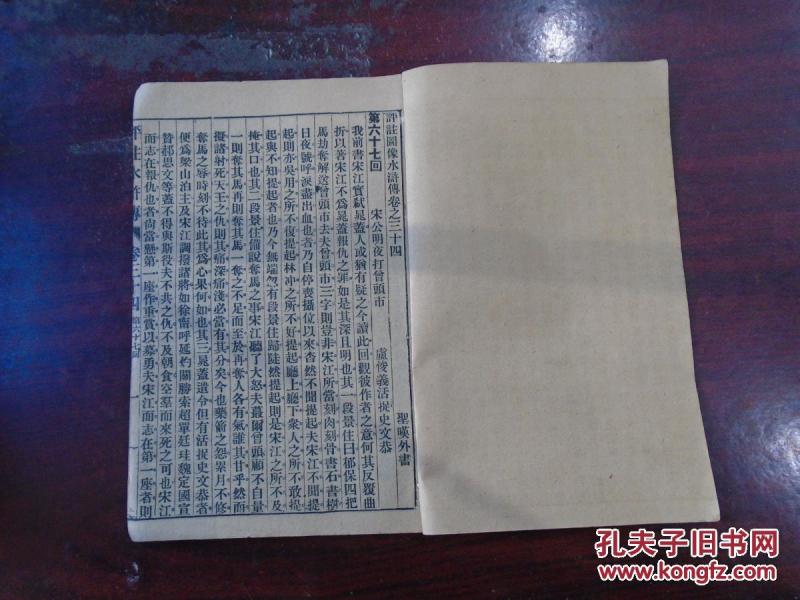 評註圖像水滸傳卷之三十四
聖嘆外書
第六十七回 宋公明夜打曾頭市 盧俊義活捉史文恭
我前書宋江實弒晁蓋人或猶有疑之今讀此回觀彼作者之意何其反覆曲
折以著宋江不爲晁蓋報仇之罪如是其深且明也其一段景住曰郁保四把
馬劫奪解送曾頭市去夫曾頭市三字則豈非宋江所當刻肉刻骨書石書樹
日夜號呼淚盡出血也者乃自停喪攝位以來杳然不聞提起夫宋江不聞提
起則亦吳用之所不復提起林冲之所不好提起廳上廳下衆人之所不敢提
起與不知提起者也乃今無端忽有段景住歸陡然提起則是宋江之所不及
掩其口也其二段景住備說奪馬之事宋江聽了大怒夫蕞爾曾頭顧不自量
一則奪其馬再則奪其馬一奪之不足而至於再奪人各有氣誰其甘乎然而
擬諸射死天王之仇則其痛深痛淺必當有其分矣今也藥箭之怨累月不修
奪馬之辱時刻不待此其爲心果何如也其三晁蓋遺令但有活捉史文恭者
便爲梁山泊主及宋江調撥諸將如徐甯呼延灼關勝索超單廷珪魏定國宣
贊郝思文等蓋不得與斯役夫不共之仇不及朝食空羣而來死之可也宋江
而志在報仇也者尙當懸第一座作重賞以募勇夫宋江而志在第一座者則
評註水滸傳 卷三十四 第六十七回 一
孔夫子旧书网
www.kongfz.com